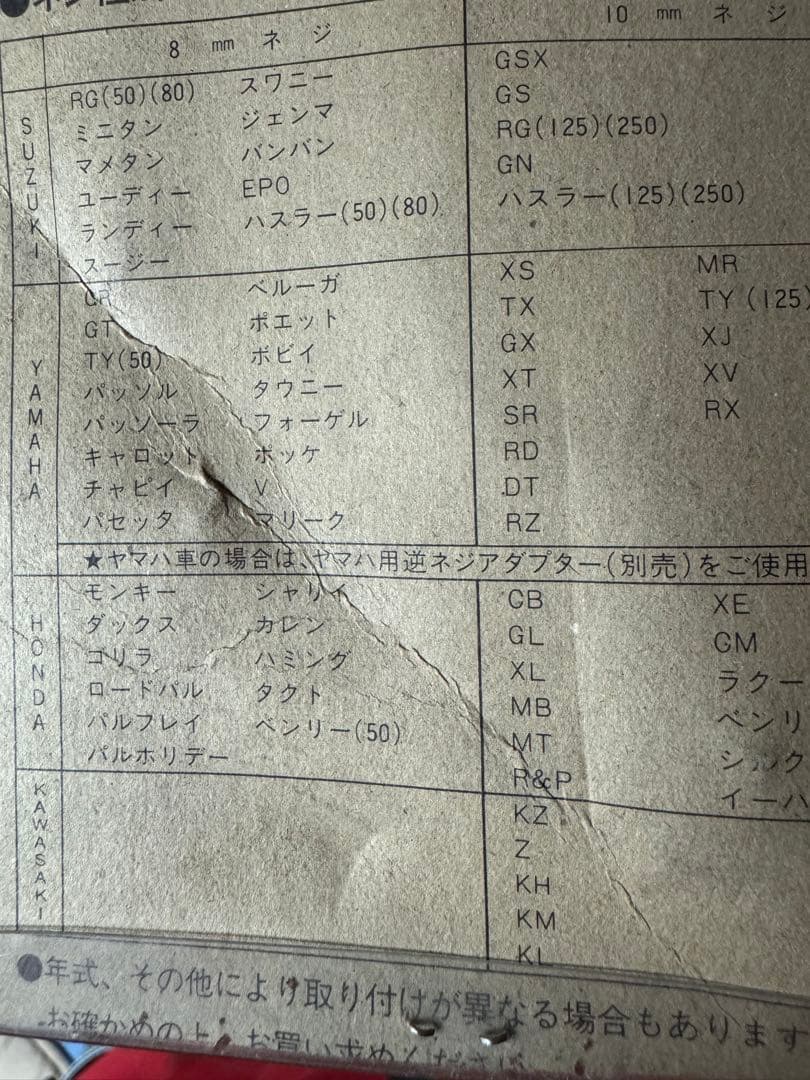 8 mm ネジ
10 mm ネジ
SUZUKI
RG(50)(80) スワニー
ミニタン ジェンマ
マメタン バンバン
ユーディー EPO
ランディー ハスラー(50)(80)
スージー
GSX
GS
RG(125)(250)
GN
ハスラー(125)(250)
YAMAHA
GR ベルーガ
GT ポエット
TY(50) ボビイ
パッソル タウニー
パッソーラ フォーゲル
キャロット ポッケ
チャピイ V
パセッタ マリーク
XS MR
TX TY(125)
GX XJ
XT XV
SR RX
RD
DT
RZ
★ヤマハ車の場合は、ヤマハ用逆ネジアダプター(別売)をご使用
HONDA
モンキー シャリイ
ダックス カレン
ゴリラ ハミング
ロードパル タクト
パルフレイ ベンリー(50)
パルホリデー
CB XE
GL GM
XL ラクー
MB ベンリ
MT シルク
R&P イーハ
KAWASAKI
KZ
Z
KH
KM
KL
●年式、その他により取り付けが異なる場合もあります
お確かめの上、お買い求めください